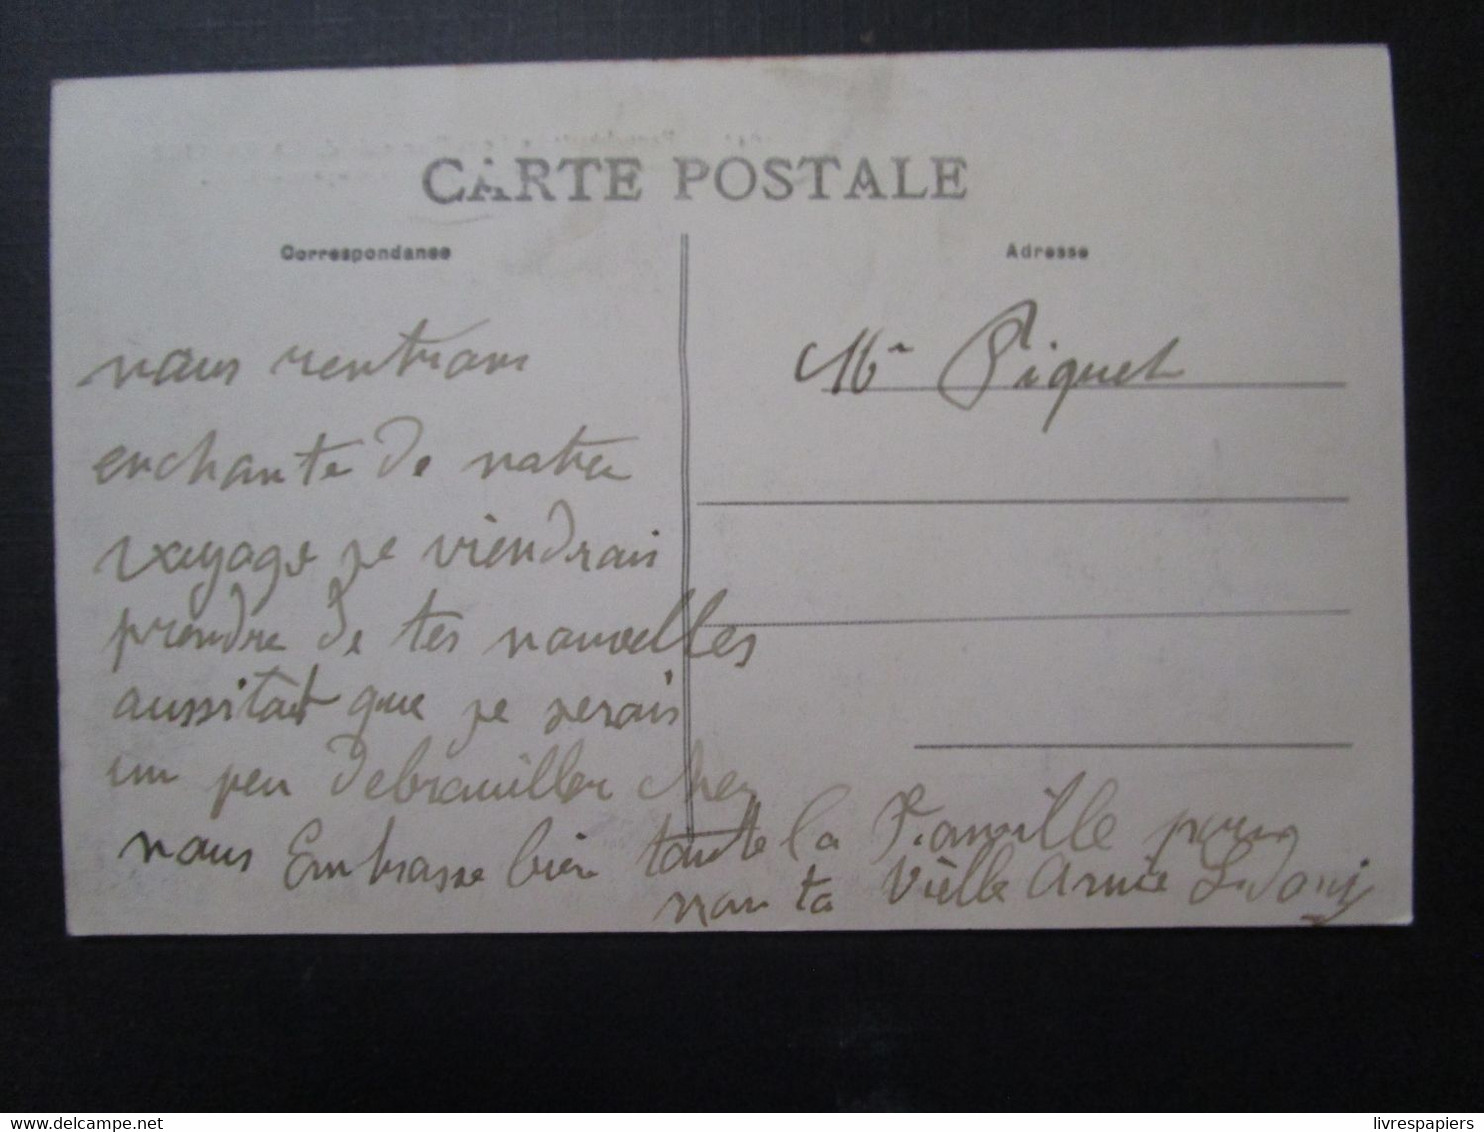 CARTE POSTALE
Correspondance
Adresse
nous rentrons
enchante de notre
voyage je viendrais
prendre de tes nouvelles
aussitat que je serais
un peu debrouiller chez
nous Embrasse bien toute la Famille pour
nou ta Vièlle Amie
Mr Piquet
livrespapiers
delcampe.net